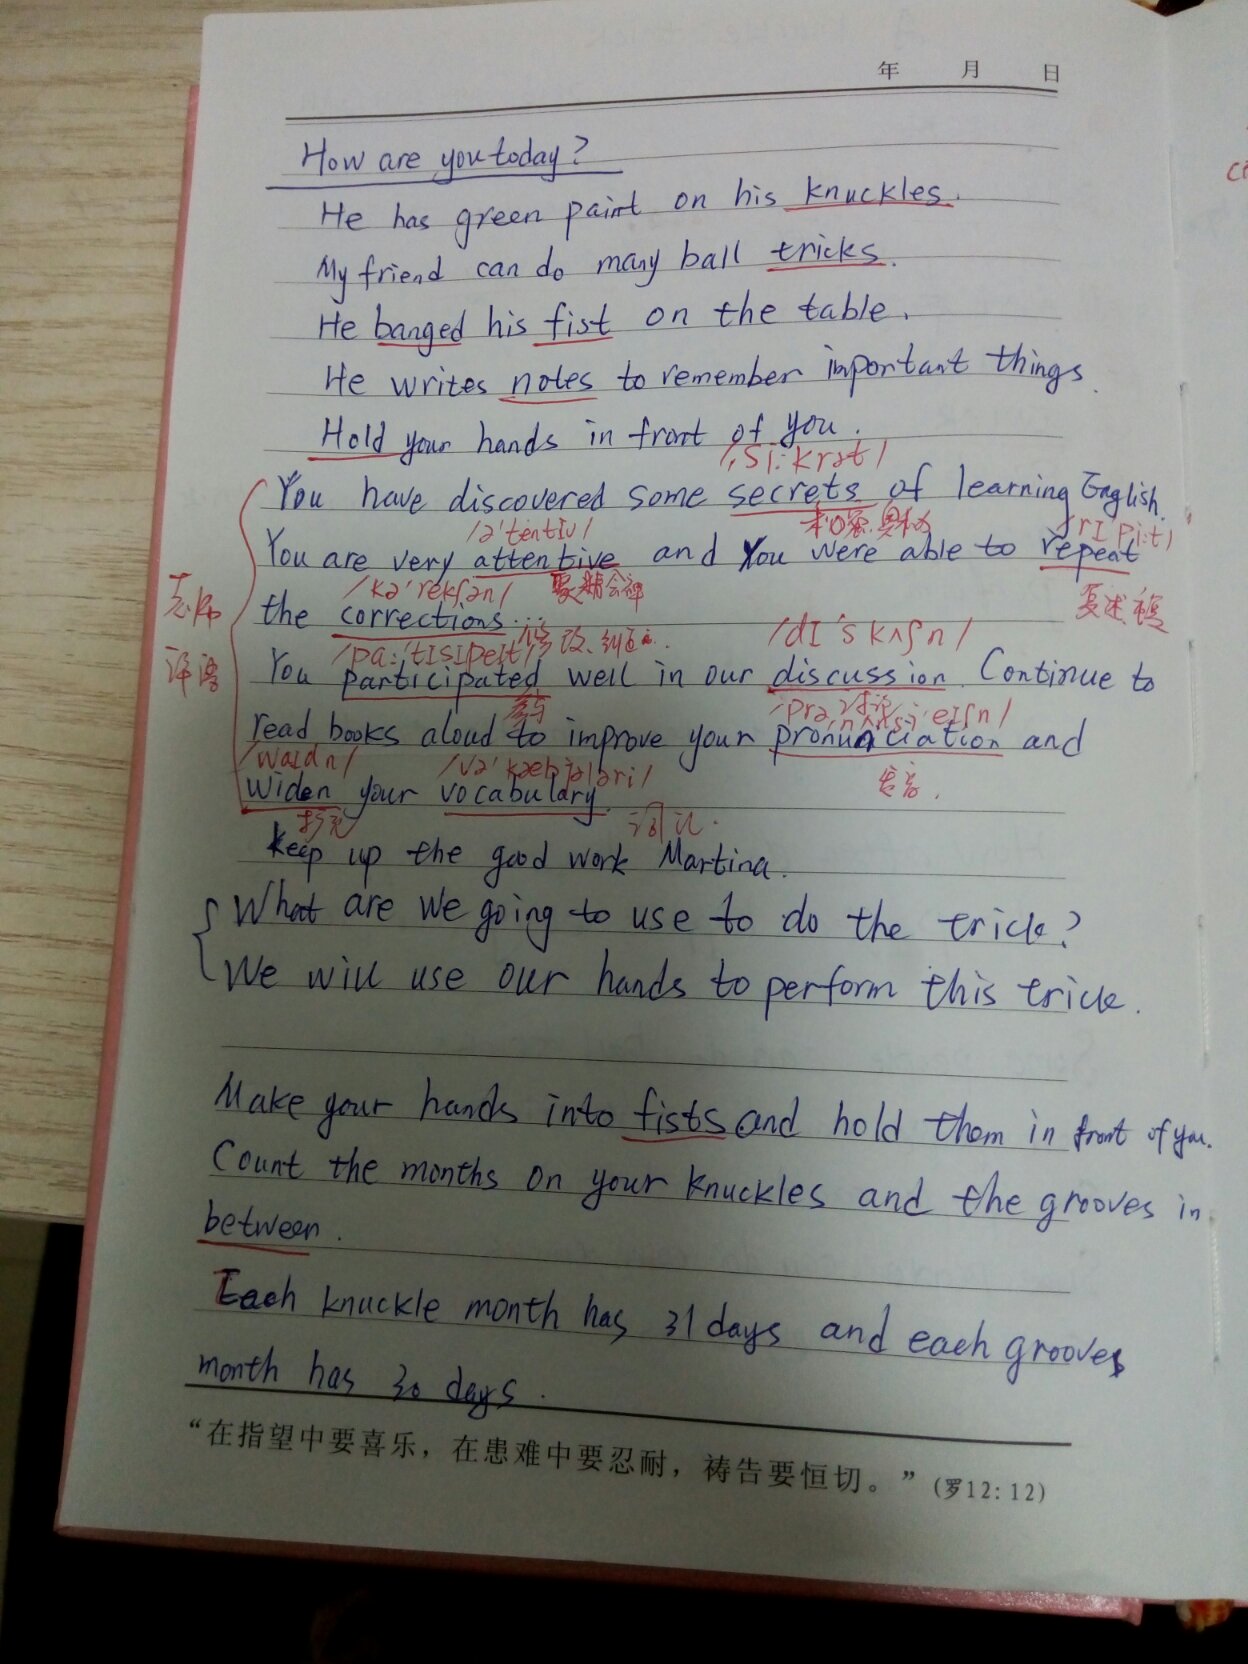 年 月 日
How are you today?
He has green paint on his knuckles.
My friend can do many ball tricks.
He banged his fist on the table.
He writes notes to remember important things.
Hold your hands in front of you.
/ˈsiːkrət/
You have discovered some secrets of learning English.
/ə'tentɪv/ 秘密.奥秘 /rɪ'piːt/
You are very attentive and you were able to repeat
/kə'rekʃən/ 聚精会神 复述 重复
老师 the corrections.
修改、纠正 /dɪ'skʌʃn/
评语 /pɑː'tɪsɪpeɪt/
You participated well in our discussion. Continue to
参与 讨论 /prəˌnʌnsi'eɪʃn/
read books aloud to improve your pronunciation and
/waɪdn/ /və'kæbjələri/ 发音.
widen your vocabulary.
扩充 词汇.
keep up the good work Martina.
What are we going to use to do the trick?
We will use our hands to perform this trick.
Make your hands into fists and hold them in front of you.
Count the months on your knuckles and the grooves in
between.
Each knuckle month has 31 days and each grooves
month has 30 days.
“在指望中要喜乐，在患难中要忍耐，祷告要恒切。”(罗12：12)